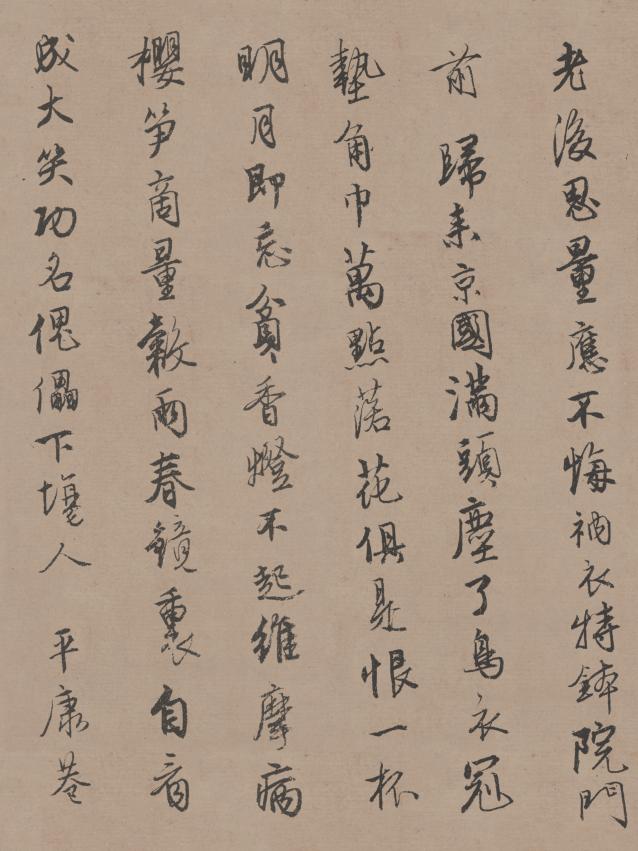 老後思量應不悔衲衣持鉢院門
前 歸來京國滿頭塵了烏衣冠
墊角巾萬點落花俱是恨一杯
明月即忘貧香燈不起維摩病
櫻筍商量穀雨春鏡裏自看
成大笑功名傀儡下場人
平康巷